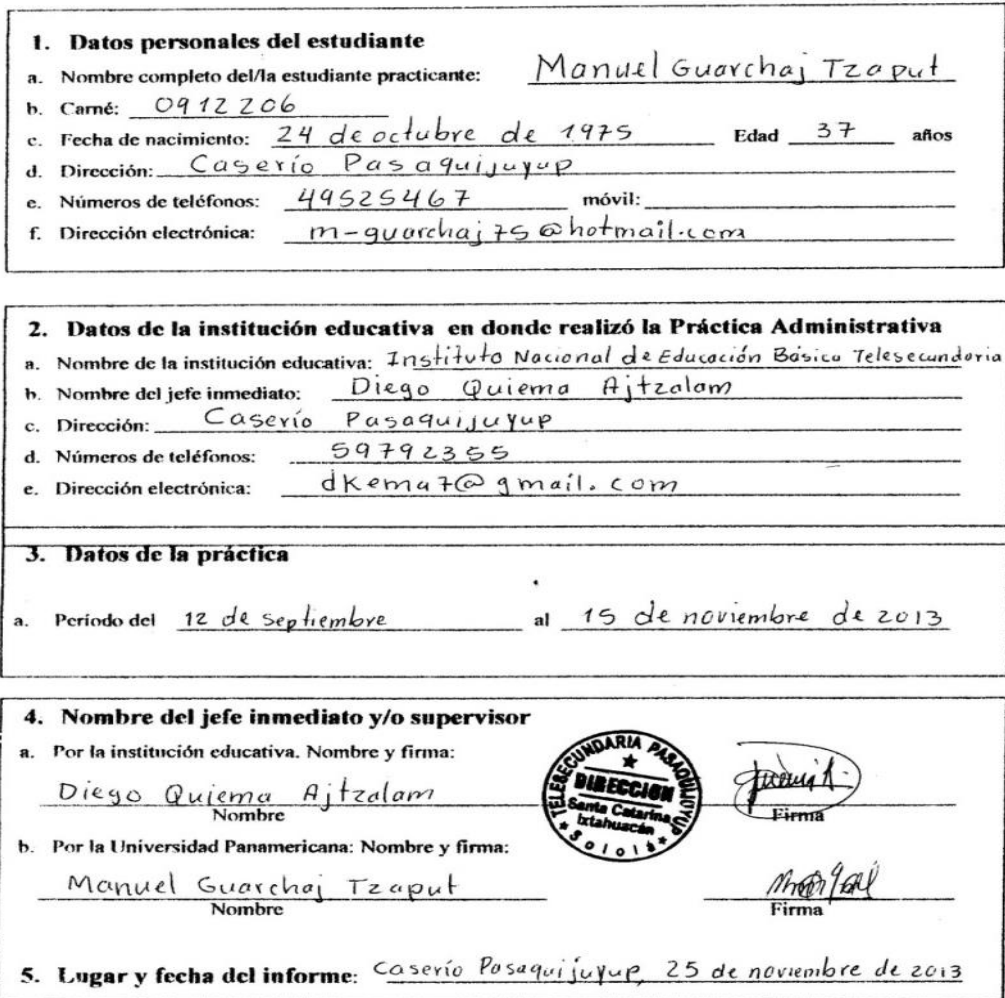 1. Datos personales del estudiante
a. Nombre completo del/la estudiante practicante: Manuel Guarchaj Tzaput
b. Carné: 0912206
c. Fecha de nacimiento: 24 de octubre de 1975 Edad 37 años
d. Dirección: Caserío Pasaquijuyup
e. Números de teléfonos: 49525467 móvil:
f. Dirección electrónica: m-guarchaj75@hotmail.com
2. Datos de la institución educativa en donde realizó la Práctica Administrativa
a. Nombre de la institución educativa: Instituto Nacional de Educación Básica Telesecundaria
b. Nombre del jefe inmediato: Diego Quiema Ajtzalam
c. Dirección: Caserío Pasaquijuyup
d. Números de teléfonos: 59792355
e. Dirección electrónica: dkema7@gmail.com
3. Datos de la práctica
a. Período del 12 de septiembre al 15 de noviembre de 2013
4. Nombre del jefe inmediato y/o supervisor
a. Por la institución educativa. Nombre y firma:
Diego Quiema Ajtzalam
Nombre Firma
TELESECUNDARIA PASAQUIJUYUP
DIRECCION
Santa Catarina
Ixtahuacán
Sololá
b. Por la Universidad Panamericana: Nombre y firma:
Manuel Guarchaj Tzaput
Nombre Firma
5. Lugar y fecha del informe: Caserío Pasaquijuyup, 25 de noviembre de 2013